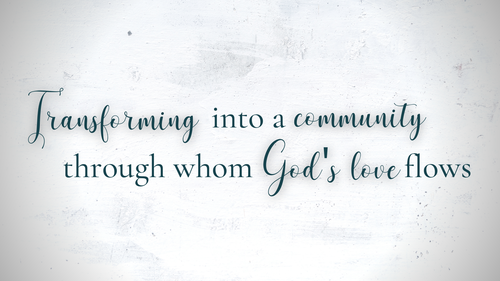 Transforming into a community
through whom God's love flows